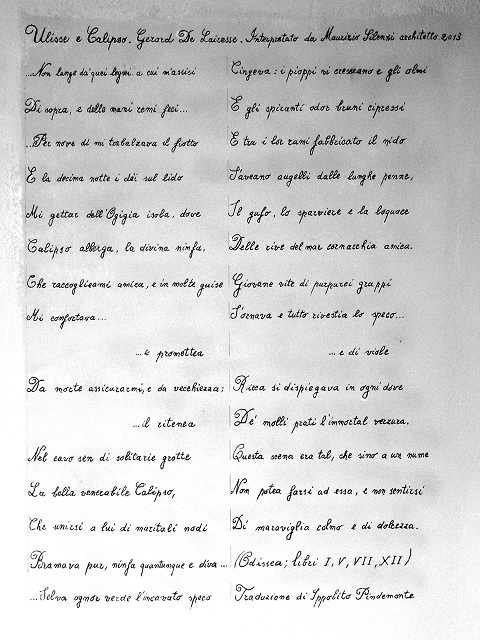 Ulisse e Calipso. Gerard De Lairesse. Interpretato da Maurizio Silenzi architetto 2013
...Non lunge da' quei legni a cui m'assisi
Di sopra, e delle mani remi feci...
...Per nove dì mi trabalzava il fiotto
E la decima notte i dèi sul lido
Mi gettar dell'Ogigia isola, dove
Calipso alberga, la divina ninfa,
Che raccoglieami amica, e in molte guise
Mi confortava...
...e promettea
Da morte assicurarmi, e da vecchiezza;
...il ritenea
Nel cavo sen di solitarie grotte
La bella venerabile Calipso,
Che unirsi a lui di maritali nodi
Bramava pur, ninfa quantunque e diva...
...Selva ognor verde l'incavato speco
Cingeva: i pioppi vi cresceano e gli olmi
E gli spiranti odor bruni cipressi
E tra i lor rami fabbricato il nido
S'aveano augelli dalle lunghe penne,
Il gufo, lo sparviere e la loquace
Delle rive del mar cornacchia amica.
Giovane vite di purpurei grappi
S'ornava e tutto rivestia lo speco...
...e di viole
Ricca si dispiegava in ogni dove
De' molli prati l'immortal verzura.
Questa scena era tal, che sino a un nume
Non potea farsi ad essa, e non sentirsi
Di maraviglia colmo e di dolcezza.
(Odissea; libri I, V, VII, XII)
Traduzione di Ippolito Pindemonte